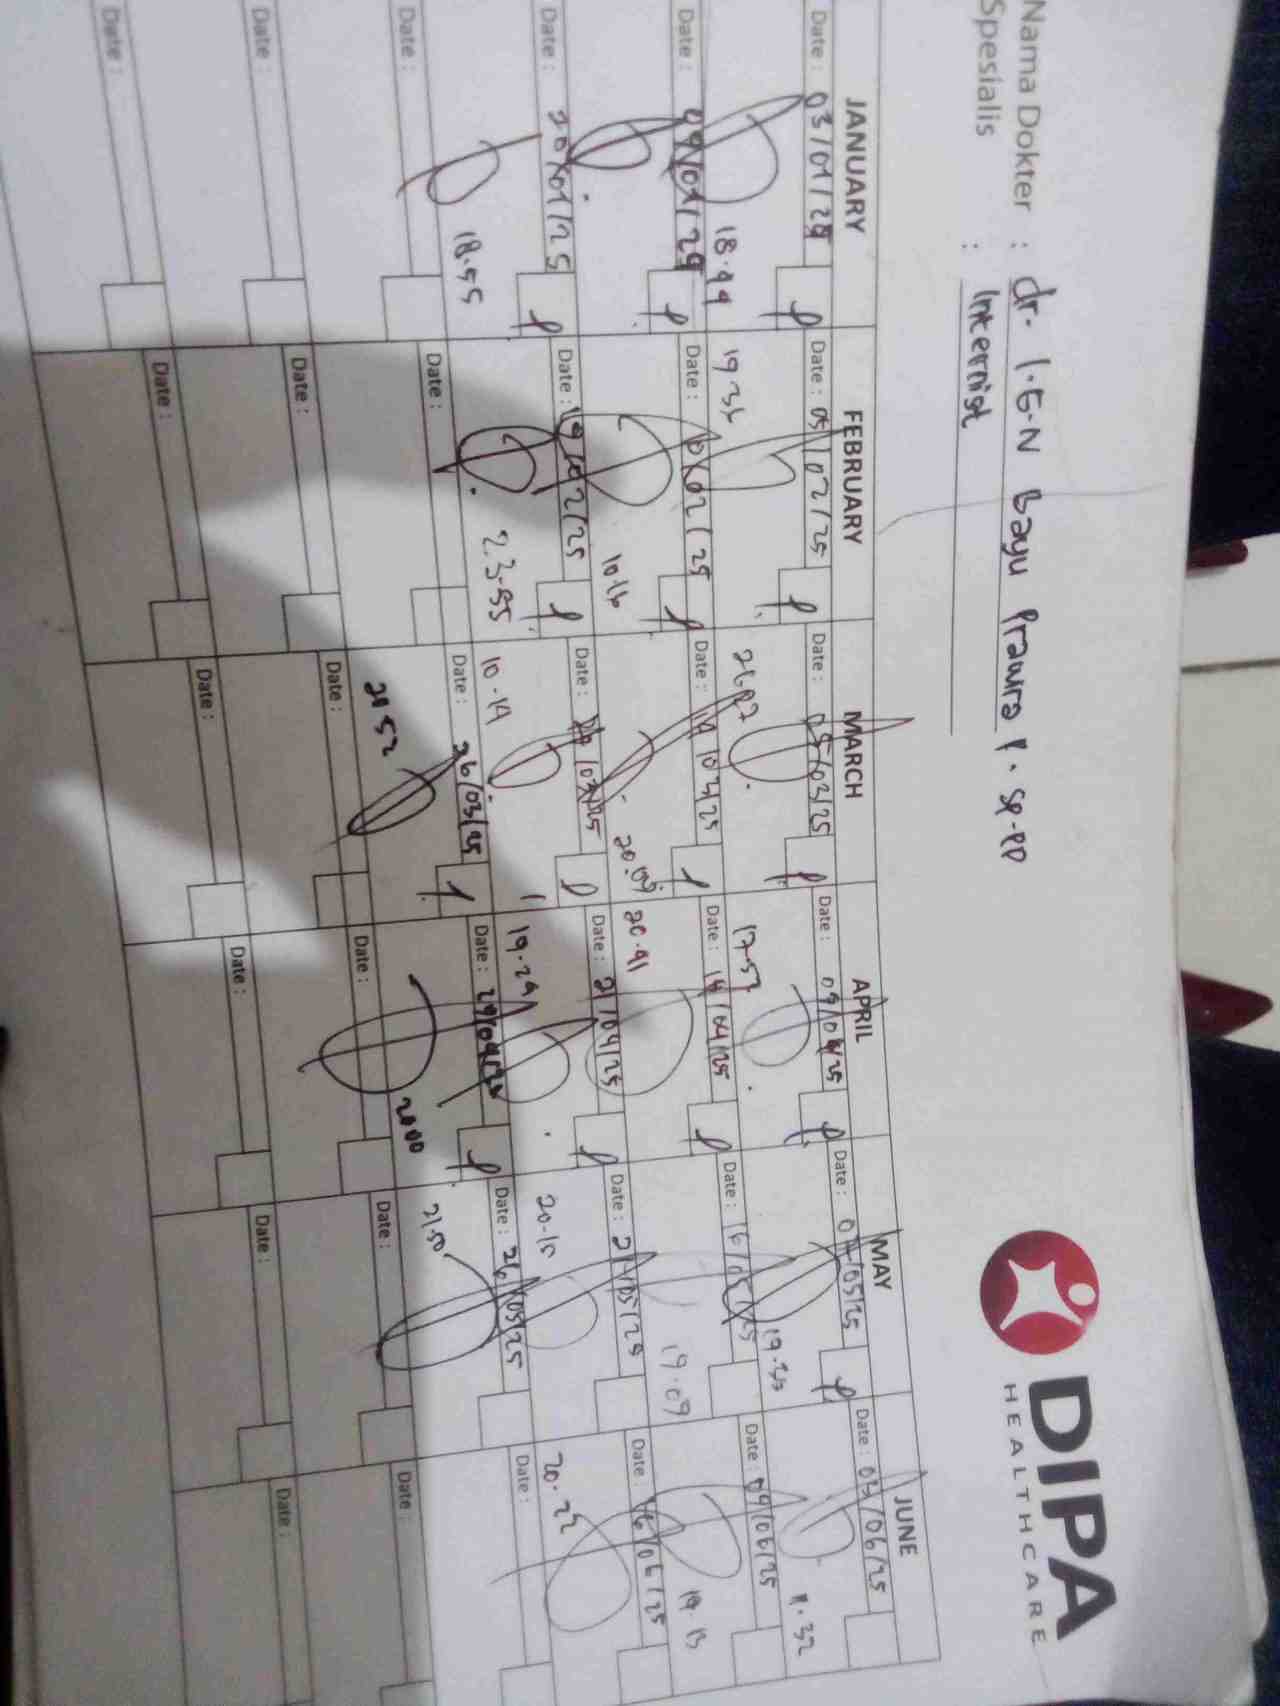 DIPA
HEALTHCARE
Nama Dokter : dr. I.G.N Bayu Prawira P. Sp.PD
Spesialis : Internist
JANUARY FEBRUARY MARCH APRIL MAY JUNE
Date : 03/01/25 Date : 05/02/25 Date : 05/03/25 Date : 09/04/25 Date : 07/05/25 Date : 03/06/25
18.44 19.36 17.57 11.32
Date : 09/01/25 Date : 10/02/25 Date : 14/03/25 Date : 14/04/25 Date : 16/05/25 Date : 09/06/25
10.16 20.09 20.41 19.09 19.13
Date : 20/01/25 Date : 19/02/25 Date : Date : 21/04/25 Date : 21/05/25 Date : 16/06/25
18.55 23.55 10.19 19.24 20.15 20.22
Date : Date : Date : 26/03/25 Date : 29/04/25 Date : 26/05/25 Date :
20.52 20.00 21.50
Date : Date : Date : Date : Date : Date :
Date : Date : Date : Date : Date : Date :